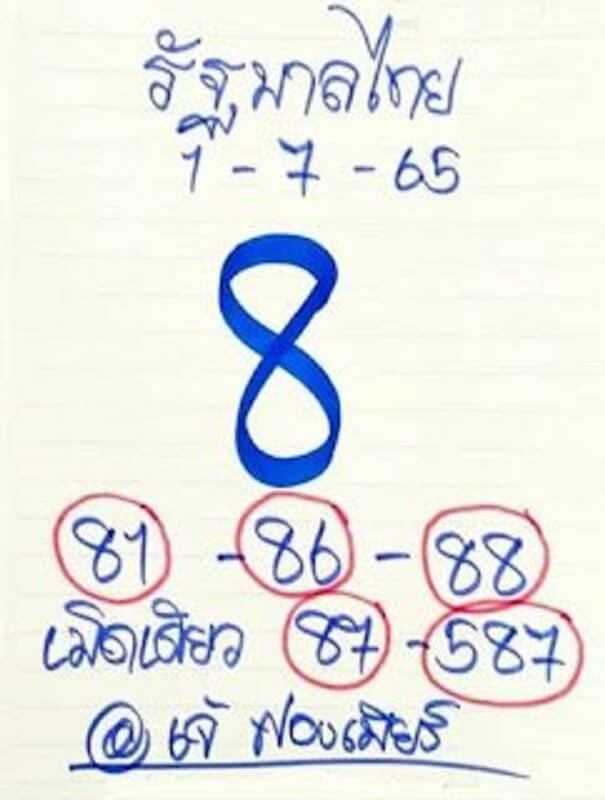 รัฐบาลไทย
1 - 7 - 65
8
81 - 86 - 88
เม็ดเดียว 87 - 587
@ เจ๊ ฟองเบียร์